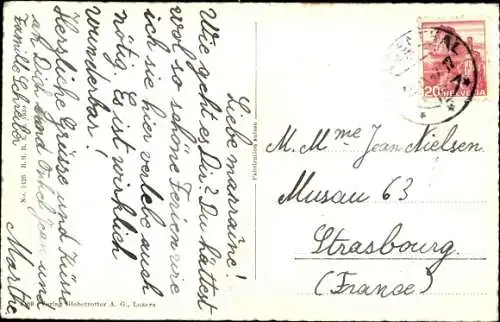 Liebe marraine!
Wie geht es Dir? Du hättest
wol so schöne Ferien wie
ich sie hier verlebe auch
nötig. Es ist wirklich
wunderbar!
Herzliche Grüsse und Küsse
an Dich und Onkel Jean und
Martie
M. Mme Jean Nielsen
Musau 63
Strasbourg.
(France)
20 HELVETIA
Verlag Globetrotter A. G., Luzern